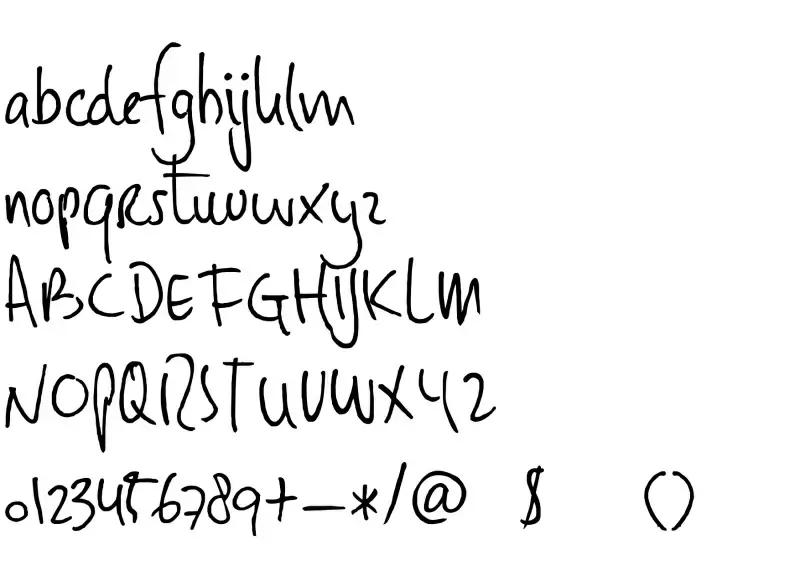 abcdefghijklm
nopqrstuvwxyz
ABCDEFGHIJKLM
NOPQRSTUVWXYZ
0123456789+-*/@ $ ()